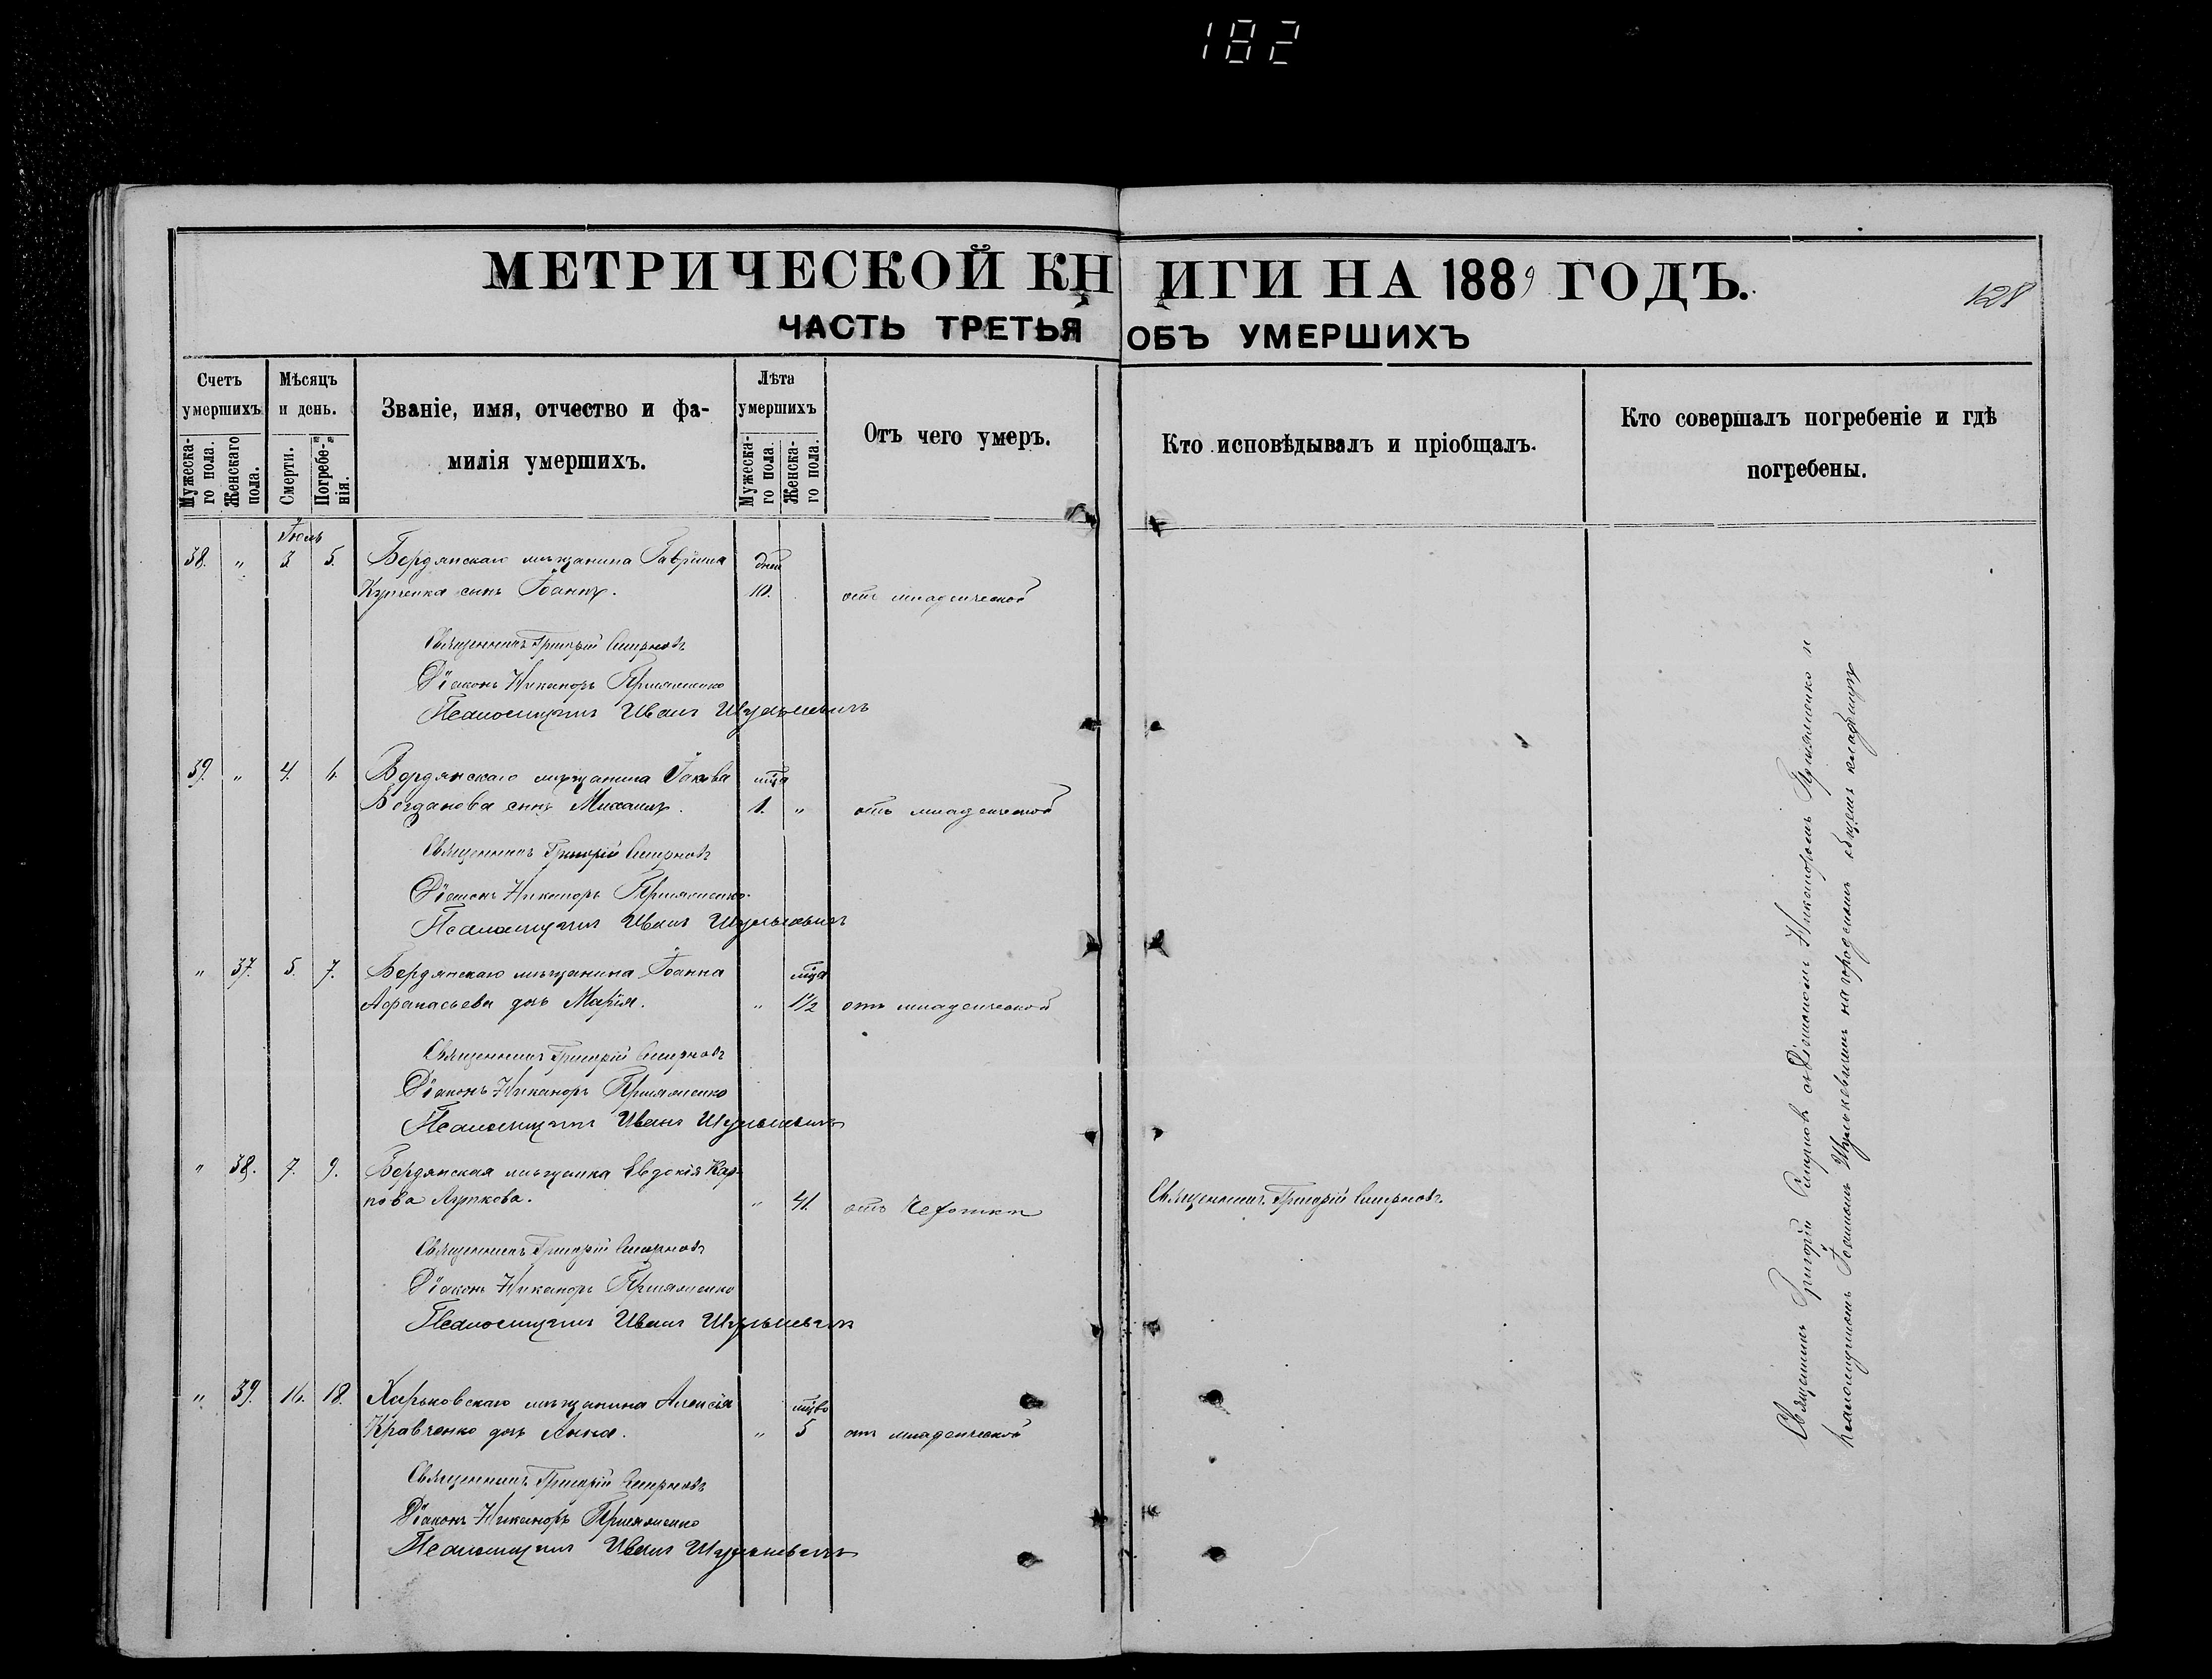 182
МЕТРИЧЕСКОЙ КНИГИ НА 1889 ГОДЪ.
128
ЧАСТЬ ТРЕТЬЯ ОБЪ УМЕРШИХЪ
Счетъ умершихъ.
Мужеска-го пола.
Женскаго пола.
Мѣсяцъ и день.
Смерти.
Погребе-нія.
Званіе, имя, отчество и фа-
милія умершихъ.
Лѣта умершихъ
Мужеска-го пола.
Женска-го пола.
Отъ чего умеръ.
Кто исповѣдывалъ и пріобщалъ.
Кто совершалъ погребеніе и гдѣ
погребены.
Іюль
38. " 3. 5. Бердянскаго мѣщанина Гавріила дней
сынъ Іоаннъ. 10. отъ младенческой
Священникъ Григорій Смирновъ
Діаконъ Никаноръ
Псаломщикъ Иванъ
39. " 4. 6. Бердянскаго мѣщанина Іакова мца
Богданова сынъ Михаилъ. 1. " отъ младенческой
Священникъ Григорій Смирновъ
Діаконъ Никаноръ
Псаломщикъ Иванъ
" 37. 5. 7. Бердянскаго мѣщанина Іоанна мца
Афанасьева дочь Марія. " 1½ отъ младенческой
Священникъ Григорій Смирновъ
Діаконъ Никаноръ
Псаломщикъ Иванъ
" 38. 7. 9. Бердянская мѣщанка Евдокія Кар-
пова " 41. отъ чахотки Священникъ Григорій Смирновъ.
Священникъ Григорій Смирновъ
Діаконъ Никаноръ
Псаломщикъ Иванъ
" 39. 16. 18. Харьковскаго мѣщанина Алексія мцвъ
Кравченко дочь Анна. " 5 отъ младенческой
Священникъ Григорій Смирновъ
Діаконъ Никаноръ
Псаломщикъ Иванъ
Священникъ Григорій Смирновъ съ Діакономъ Никаноромъ и
псаломщикомъ Іоанномъ на городскомъ общемъ кладбищѣ